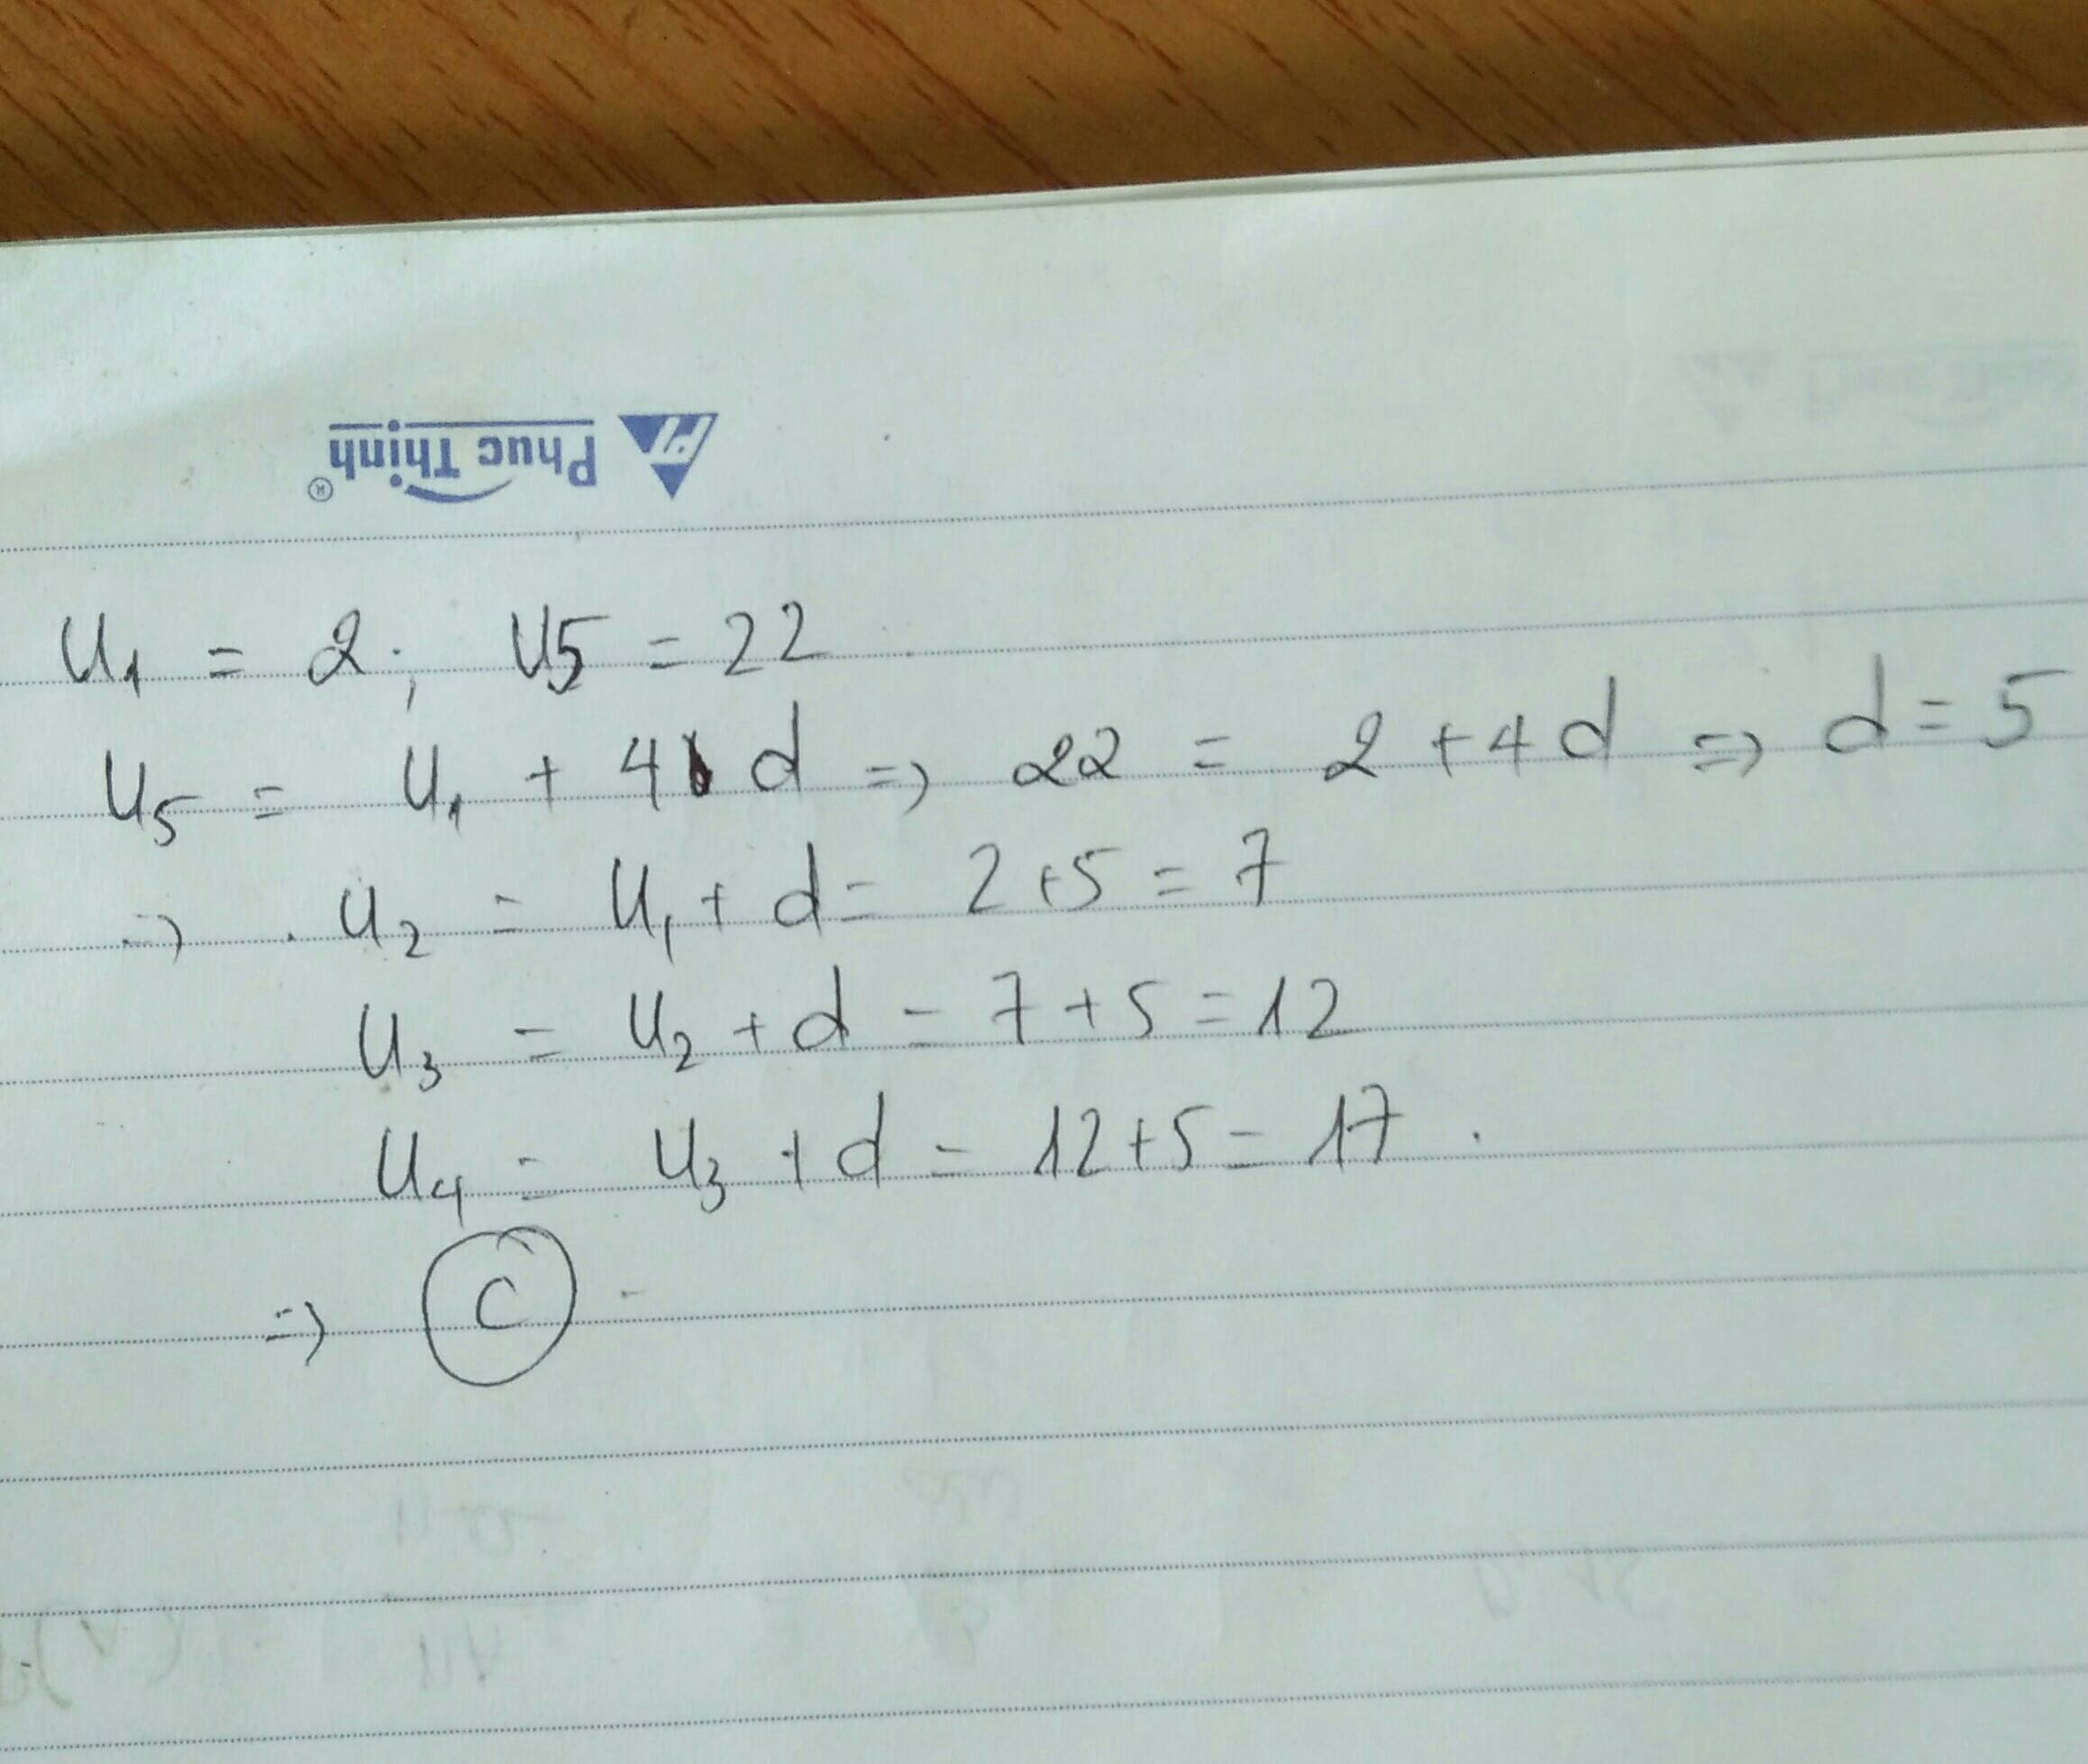 Phuc Thịnh®
u₁ = 2; u5 = 22
u₅ = u₁ + 4 d => 22 = 2 + 4d => d = 5
=> . u₂ = u₁ + d = 2+5 = 7
u₃ = u₂ + d = 7 + 5 = 12
u₄ = u₃ + d = 12+5 = 17.
=> C